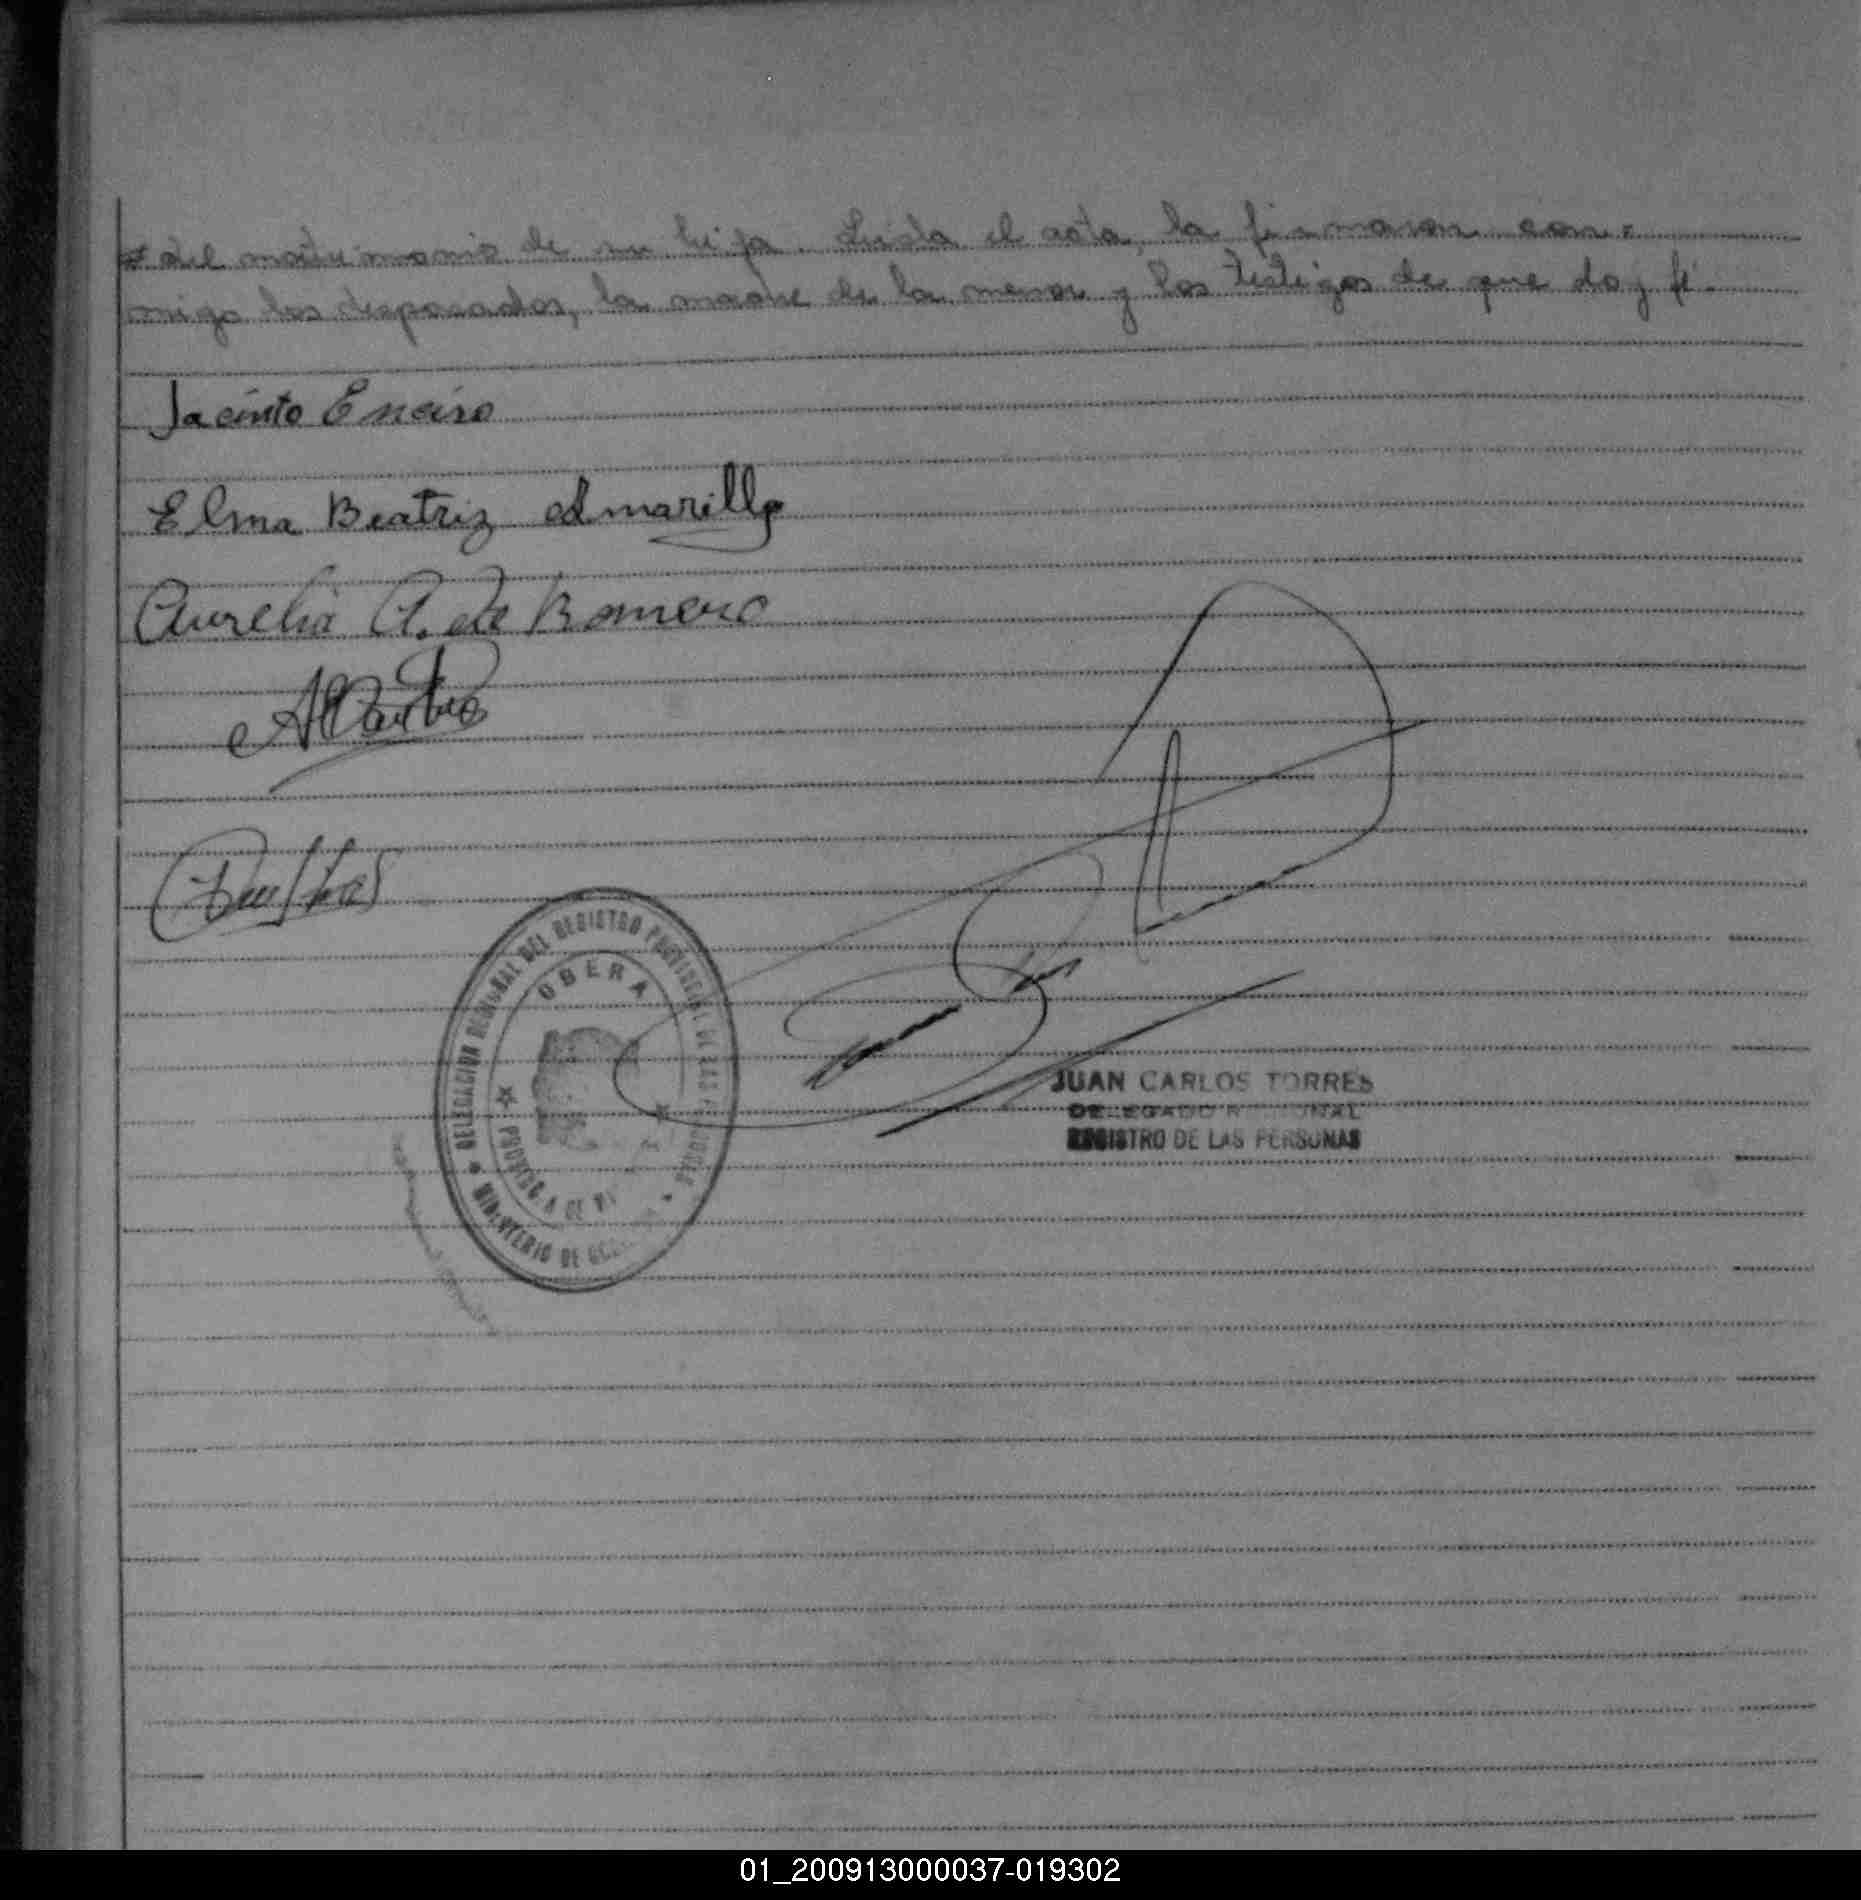 del matrimonio de su hija. Leída el acta, la firmaron con-
migo los desposados, la madre de la menor y los testigos de que doy fé.
Jacinto Enciso
Elma Beatriz Amarilla
Aurelia A. de Romero
DELEGACION REGIONAL DEL REGISTRO PROVINCIAL DE LAS PERSONAS
OBERA
PROVINCIA DE
MINISTERIO DE
JUAN CARLOS TORRES
DELEGADO REGIONAL
REGISTRO DE LAS PERSONAS
01_200913000037-019302